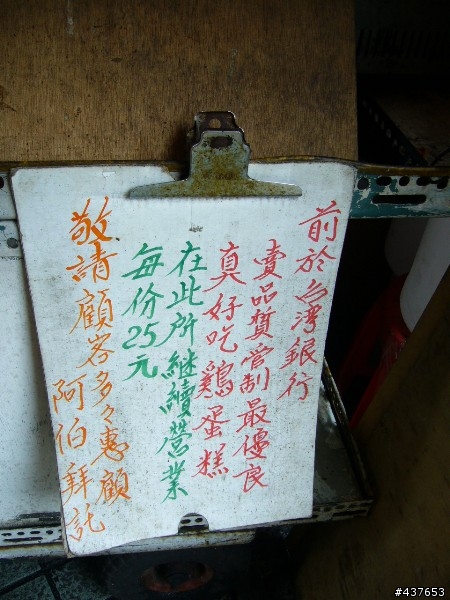 前於台灣銀行
賣品質管制最優良
真好吃鷄蛋糕
在此所継續營業
每份25元
敬請顧客多々惠顧
阿伯拜託
#437653